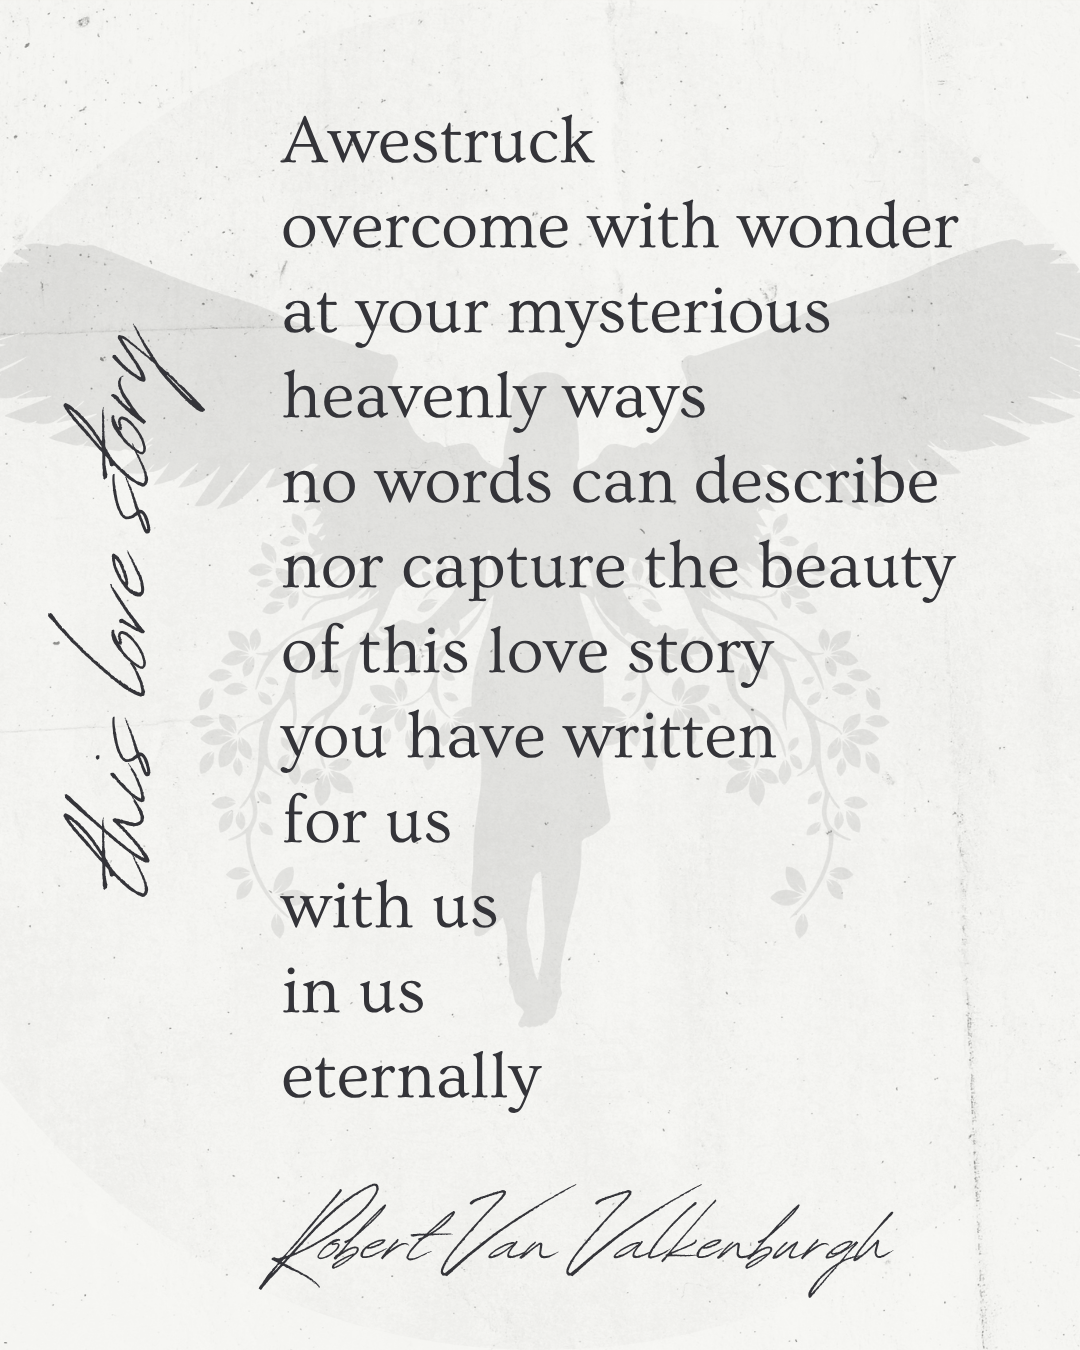 this love story
Awestruck
overcome with wonder
at your mysterious
heavenly ways
no words can describe
nor capture the beauty
of this love story
you have written
for us
with us
in us
eternally
Robert Van Valkenburgh